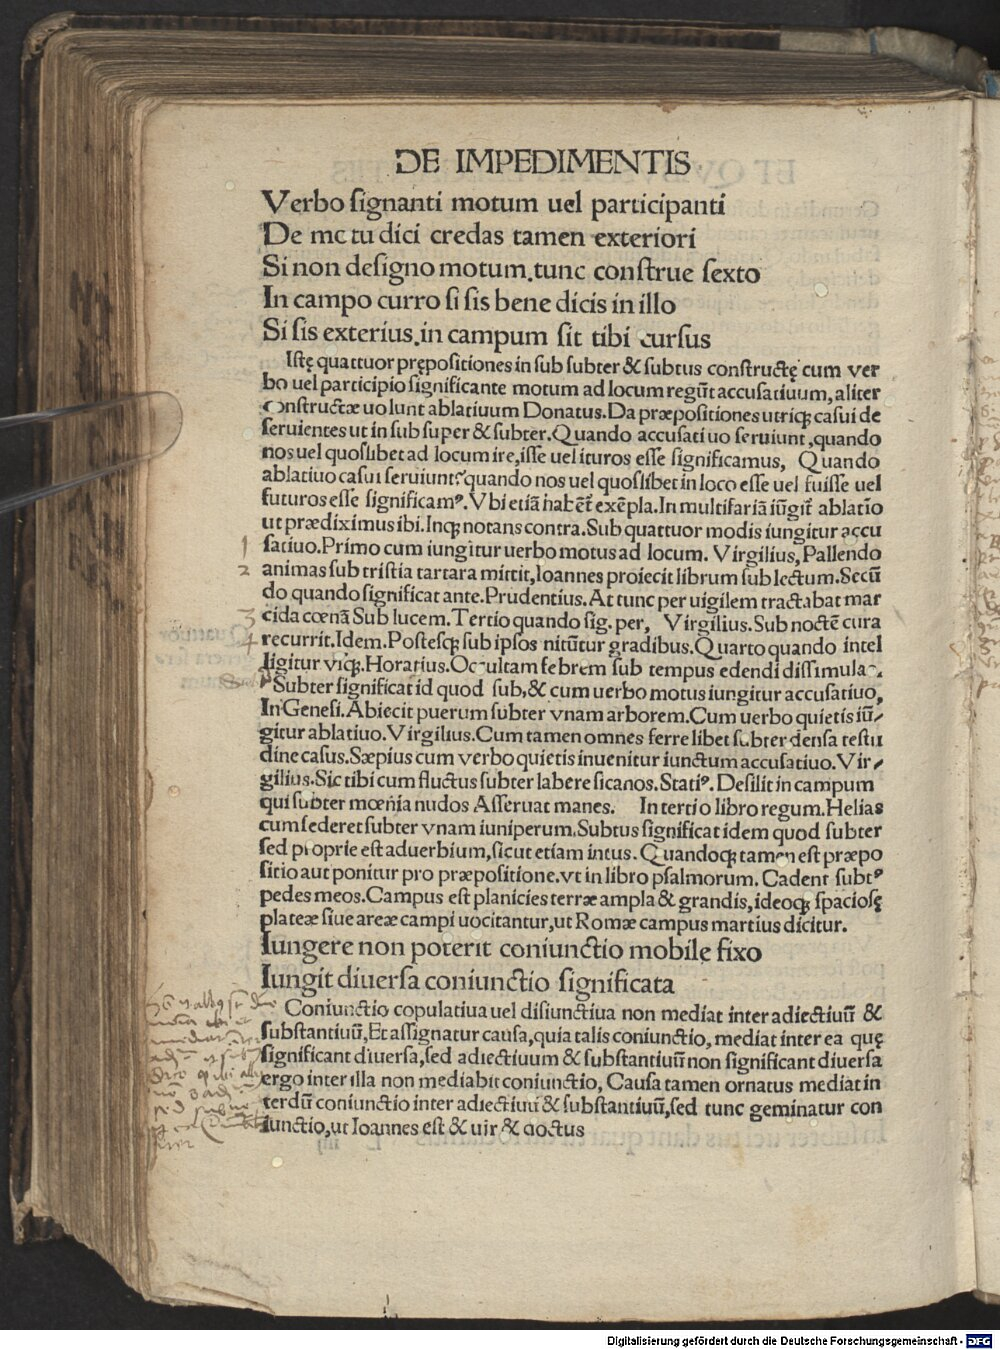 DE IMPEDIMENTIS
Verbo signanti motum uel participanti
De motu dici credas tamen exteriori
Si non designo motum.tunc construe sexto
In campo curro si sis bene dicis in illo
Si sis exterius.in campum sit tibi cursus
Istę quattuor prępositiones in sub subter & subtus constructę cum ver
bo uel participio significante motum ad locum regūt accusatiuum, aliter
constructæ uolunt ablatiuum Donatus. Da præpositiones utriqꝫ casui de
seruientes ut in sub super & subter. Quando accusatiuo seruiunt, quando
nos uel quoslibet ad locum ire, isse uel ituros esse significamus, Quando
ablatiuo casui seruiunt? quando nos uel quoslibet in loco esse uel fuisse uel
futuros esse significamꝰ. Vbi etiā habēt̄ exēpla. In multifariā iūgit᷑ ablatio
ut prædiximus ibi. Inqꝫ notans contra. Sub quattuor modis iungitur accu
1 satiuo. Primo cum iungitur uerbo motus ad locum. Virgilius, Pallendo
2 animas sub tristia tartara mittit, Ioannes proiecit librum sub lectum. Secū
do quando significat ante. Prudentius. At tunc per uigilem tractabat mar
3 cida cœnā Sub lucem. Tertio quando sig. per, Virgilius. Sub noctē cura
4 recurrit. Idem. Postesqꝫ sub ipsos nitūtur gradibus. Quarto quando intel
ligitur viqꝫ. Horatius. Occultam febrem sub tempus edendi dissimula
Subter significat id quod sub, & cum uerbo motus iungitur accusatiuo,
In Genesi. Abiecit puerum subter vnam arborem. Cum uerbo quietis iū⸗
gitur ablatiuo. Virgilius. Cum tamen omnes ferre libet subter densa testu
dine casus. Sæpius cum verbo quietis inuenitur iunctum accusatiuo. Vir⸗
gilius. Sic tibi cum fluctus subter labere sicanos. Statiꝰ. Desilit in campum
qui subter mœnia nudos Asseruat manes. In tertio libro regum. Helias
cum sederet subter vnam iuniperum, Subtus significat idem quod subter
sed proprie est aduerbium, sicut etiam intus. Quandoqꝫ tamen est præpo
sitio aut ponitur pro præpositione. vt in libro psalmorum. Cadent subtꝰ
pedes meos. Campus est planicies terræ ampla & grandis, ideoqꝫ spaciosę
plateæ siue areæ campi uocitantur, ut Romæ campus martius dicitur.
Iungere non poterit coniunctio mobile fixo
Iungit diuersa coniunctio significata
Coniunctio copulatiua uel disiunctiua non mediat inter adiectiuū &
substantiuū, Et assignatur causa, quia talis coniunctio, mediat inter ea quę
significant diuersa, sed adiectiuum & substantiuū non significant diuersa
ergo inter illa non mediabit coniunctio, Causa tamen ornatus mediat in
terdū coniunctio inter adiectiuū & substantiuū, sed tunc geminatur con
iunctio, ut Ioannes est & uir & doctus
Digitalisierung gefördert durch die Deutsche Forschungsgemeinschaft - DFG